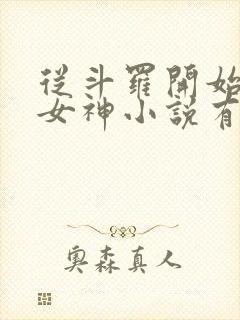 從斗羅開始
女神小說有
奧森真人